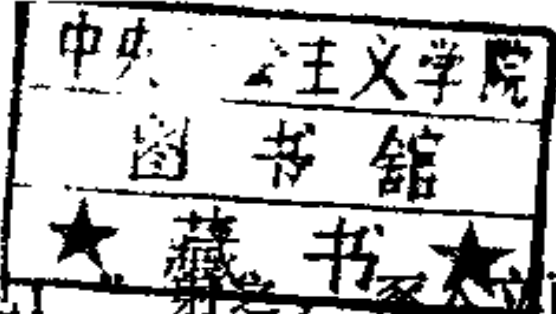 中央 主义学院
图书馆
★藏书★